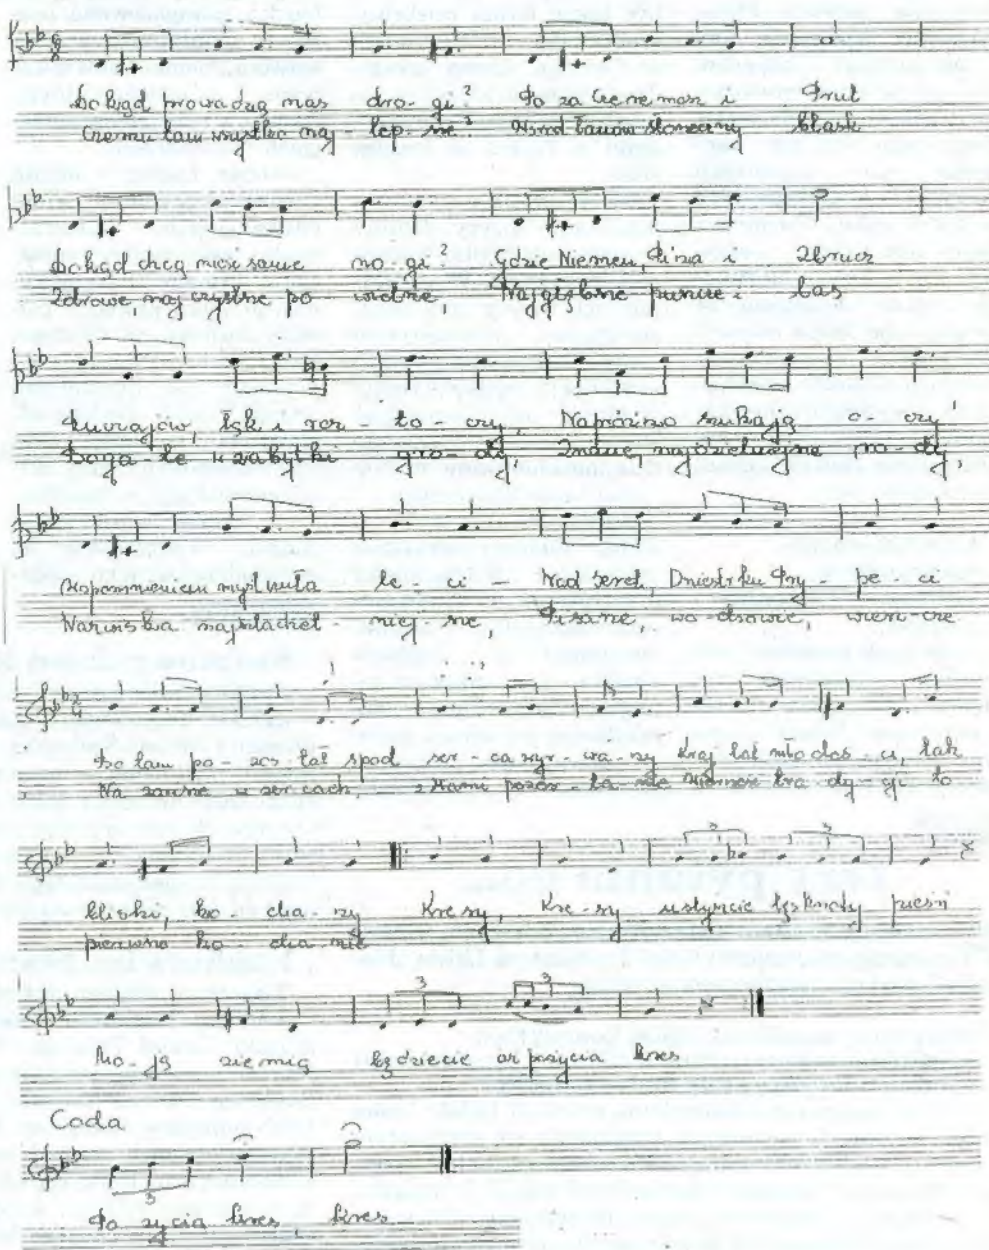 Dokąd prowadzą nas dro-gi? Po za Ciemne i Prut
Czemu tam wszystko naj-lep-sze? Wśród łanów słoneczny blask
Dokąd chcą nieść same no-gi? Gdzie Niemen, Dźwina i Zbrucz
Zdrowe, najczystsze po-wietrze, Najgłębsze puszcze i las
łąk i roz-to-czy, Napróżno szukają o-czy
te i zabytki gro-dy, Znane, najdzielniejsze ro-dy,
Wspomnieniem myśl wciąż le-ci- Nad Seret, Dniestr ku Pry-pe ci
Nazwiska najszlachet-niej-sze, Pisarze, wo-dzowie, wiesz-cze
Bo tam po-zos-tał spod ser-ca wyr-wa-ny kraj lat młodoś-ci, tak
Na zawsze w sercach, z Wami pozos-ta-nie tra-dy-cji to
bliski, ko-cha-ny Kre sy, Kre-sy usłyszcie tęsknoty pieśń
pierwsze ko-cha-nie
Mo-ją ziemią będziecie aż po życia kres
Coda
Po życia kres, kres